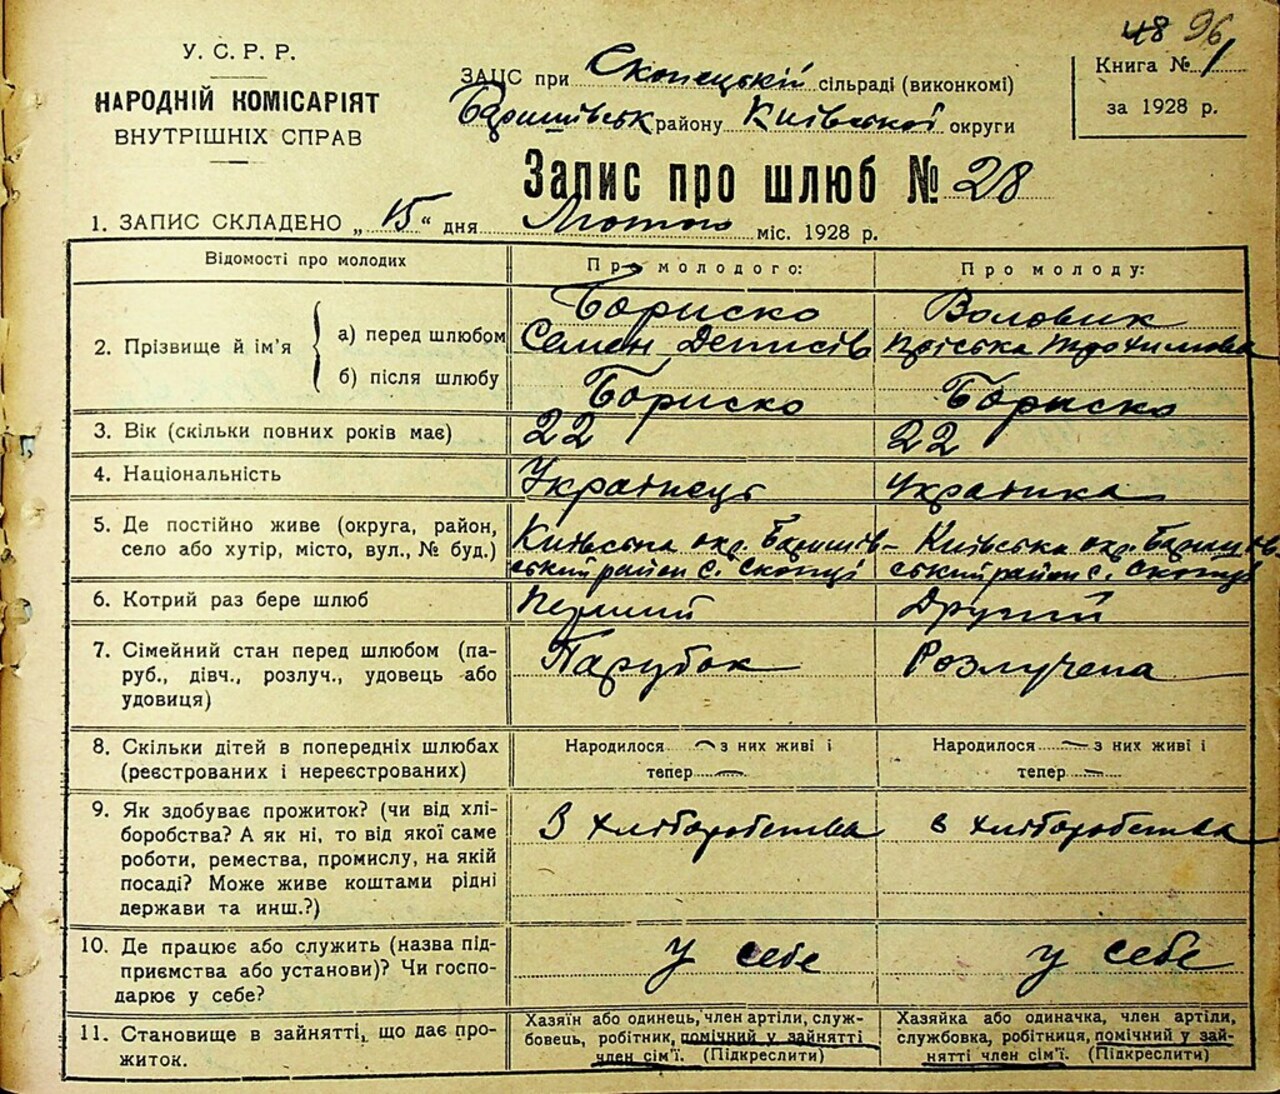 48 96
У. С. Р. Р.
НАРОДНІЙ КОМІСАРІЯТ
ВНУТРІШНІХ СПРАВ
ЗАЦС при Скопецькій сільраді (виконкомі)
Баришівськ району Київської округи
Книга № 1
за 1928 р.
Запис про шлюб № 28
1. ЗАПИС СКЛАДЕНО „15“ дня Лютого міс. 1928 р.
Відомості про молодих
Про молодого:
Про молоду:
2. Прізвище й ім’я
а) перед шлюбом
б) після шлюбу
Бориско
Семен Денисів
Бориско
Воловик
Пріська Трохимова
Бориско
3. Вік (скільки повних років має)
22
22
4. Національність
Українець
Українка
5. Де постійно живе (округа, район,
село або хутір, місто, вул., № буд.)
Київська окр. Баришів-
ський район с. Скопці
Київська окр. Баришів
ський район с. Скопці
6. Котрий раз бере шлюб
Перший
Другий
7. Сімейний стан перед шлюбом (па-
руб., дівч., розлуч., удовець або
удовиця)
Парубок
Розлучена
8. Скільки дітей в попередніх шлюбах
(реєстрованих і нереєстрованих)
Народилося — з них живі і
тепер —
Народилося — з них живі і
тепер —
9. Як здобуває прожиток? (чи від хлі-
боробства? А як ні, то від якої саме
роботи, ремества, промислу, на якій
посаді? Може живе коштами рідні
держави та инш.?)
З хліборобства
з хліборобства
10. Де працює або служить (назва під-
приємства або установи)? Чи госпо-
дарює у себе?
У себе
у себе
11. Становище в зайнятті, що дає про-
житок.
Хазяїн або одинець, член артіли, служ-
бовець, робітник, помічний у зайнятті
член сім’ї. (Підкреслити)
Хазяйка або одиначка, член артіли,
службовка, робітниця, помічний у зай-
нятті член сім’ї. (Підкреслити)